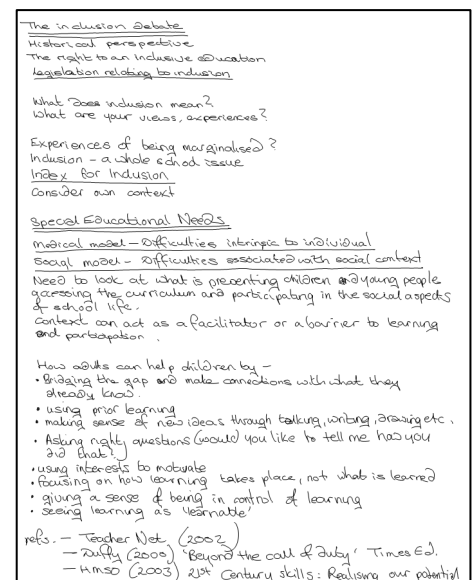 The inclusion Debate
Historical perspective
The right to an Inclusive Education
Legislation relating to inclusion
What does inclusion mean?
What are your views, experiences?
Experiences of being marginalised?
Inclusion - a whole school issue
Index for Inclusion
Consider own context
Special Educational Needs
Medical model - Difficulties intrinsic to individual
Social model - Difficulties associated with social context
Need to look at what is preventing children and young people
accessing the curriculum and participating in the social aspects
of school life.
Context can act as a facilitator or a barrier to learning
and participation.
How adults can help children by -
• Bridging the gap and make connections with what they
already know.
• using prior learning
• making sense of new ideas through talking, writing, drawing etc.
• Asking right questions (would you like to tell me how you
did that?)
• using interests to motivate
• focusing on how learning takes place, not what is learned
• giving a sense of being in control of learning
• seeing learning as 'learnable'
refs. - Teacher Net (2002)
- Duffy (2000) 'Beyond the call of duty' Times Ed.
- HMSO (2003) 21st Century skills: Realising our potential